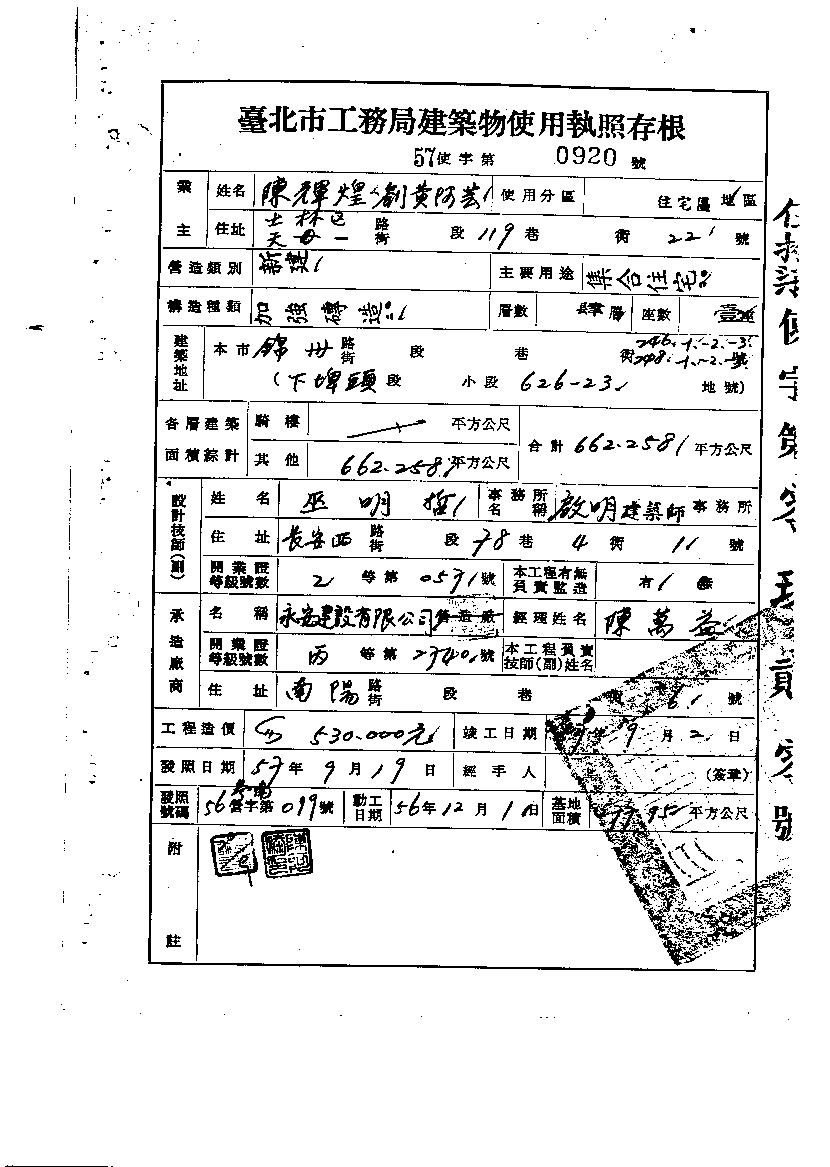 臺北市工務局建築物使用執照存根
57使字第 0920 號
業主 姓名 陳輝煌 黃阿芸 使用分區 住宅區 地區
住址 士林區天母一 路街 段 119 巷 街 22 號
營造類別 新建 主要用途 集合住宅
構造種類 加強磚造 層數 層 座數 壹座
建築地址 本市 錦州 路街 段 巷 街 246.-1.-2.-3. 248.-1.-2.-號
(下埤頭段 小段 626-23 地號)
各層建築面積綜計 騎樓 平方公尺 合計 662.258 平方公尺
其他 662.258 平方公尺
設計技師(副) 姓名 巫明哲 事務所名稱 啟明建築師事務所
住址 長安西 路街 段 78 巷 4 街 11 號
開業證等級號數 2 等第 0571 號 本工程有無負責監造 有 無
承造廠商 名稱 永安建設有限公司 營造廠 經理姓名 陳萬益
開業證等級號數 丙 等第 2340 號 本工程負責技師(副)姓名
住址 南陽 路街 段 巷 街 61 號
工程造價 530.000元 竣工日期 年 9 月 2 日
發照日期 57 年 9 月 19 日 經手人 (簽章)
發照號碼 56 營字第 019 號 動工日期 56 年 12 月 1 日 基地面積 平方公尺
附註
使字第 號